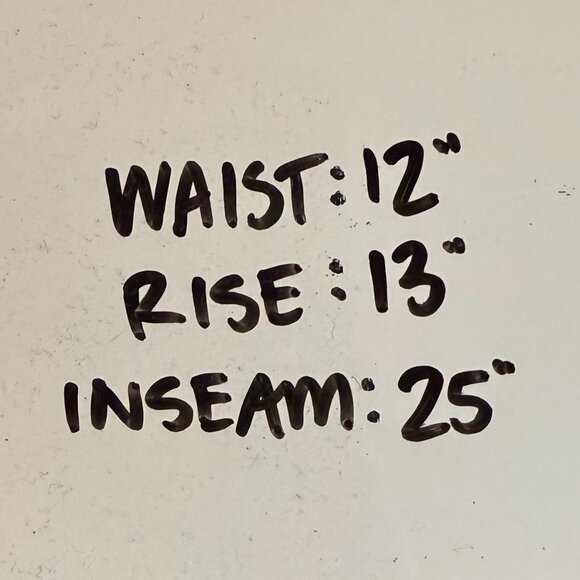 WAIST: 12"
RISE: 13"
INSEAM: 25"